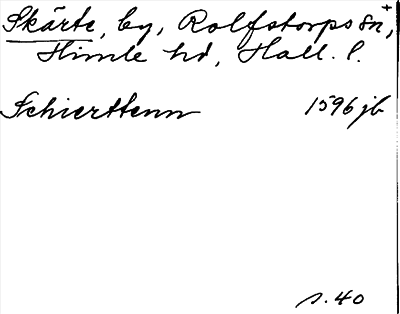 Skärte, by, Rolfstorps sn,+
Himle hd, Hall. l.
Schierttenn 1596 jb
s. 40